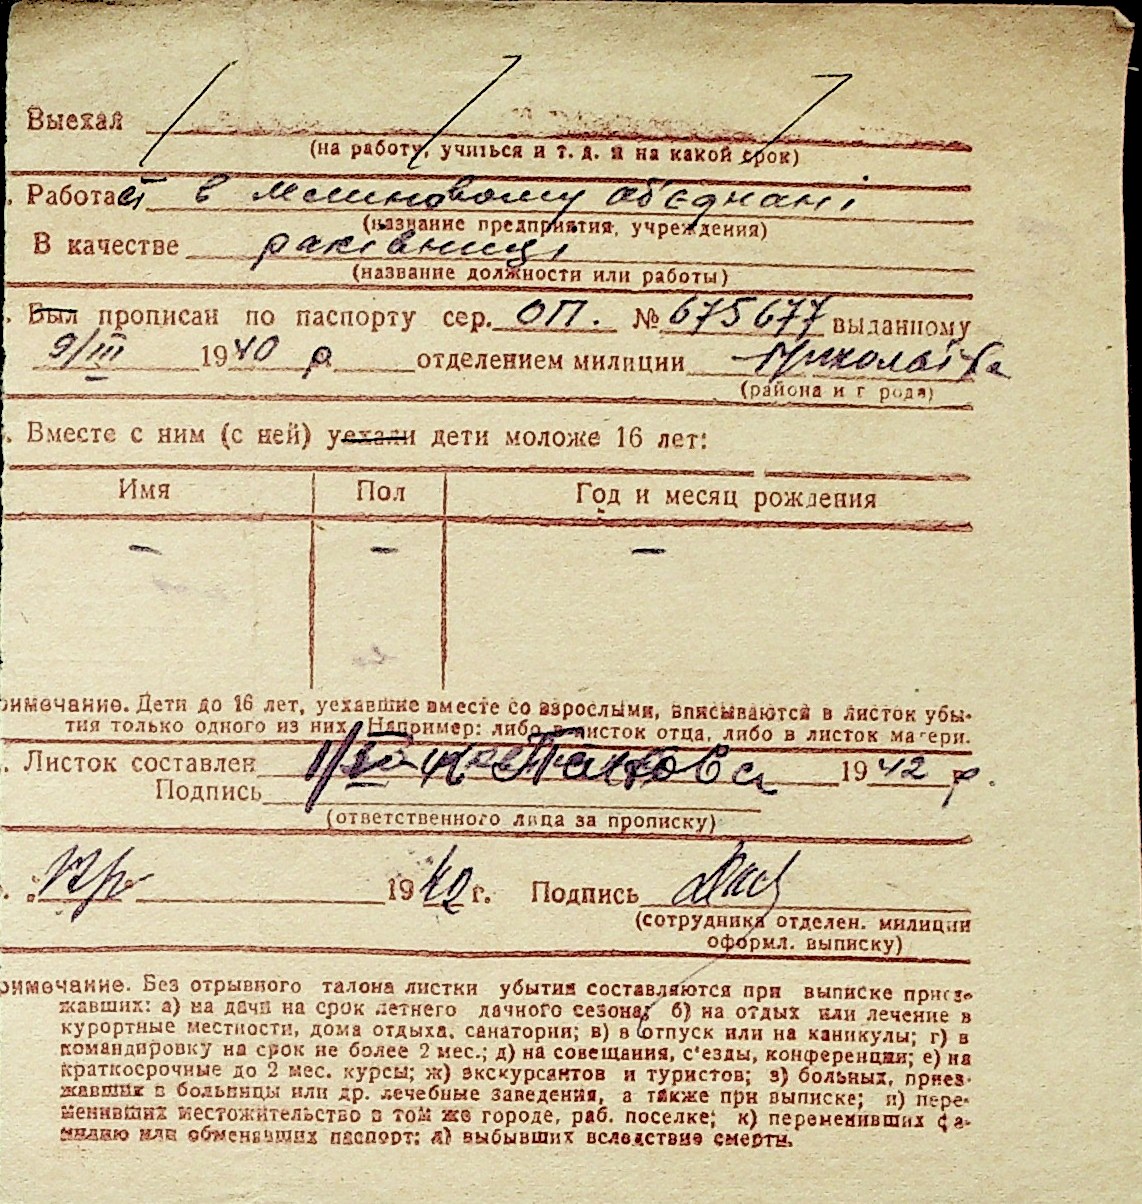 Выехал
(на работу, учиться и т. д. и на какой срок)
. Работает в млиновому об'єднані
(название предприятия, учреждения)
В качестве
(название должности или работы)
. Был прописан по паспорту сер. ОП. № 675677 выданному
9/III 1940 р отделением милиции
(района и г рода)
. Вместе с ним (с ней) уехали дети моложе 16 лет:
Имя Пол Год и месяц рождения
— — —
римечание. Дети до 16 лет, уехавшие вместе со взрослыми, вписываются в листок убы-
тия только одного из них. Например: либо в листок отца, либо в листок матери.
. Листок составлен 1942 р.
Подпись
(ответственного лица за прописку)
. 1942 г. Подпись
(сотрудника отделен. милиции
оформл. выписку)
римечание. Без отрывного талона листки убытия составляются при выписке приез-
жавших: а) на дачи на срок летнего дачного сезона; б) на отдых или лечение в
курортные местности, дома отдыха, санатории; в) в отпуск или на каникулы; г) в
командировку на срок не более 2 мес.; д) на совещания, с'езды, конференции; е) на
краткосрочные до 2 мес. курсы; ж) экскурсантов и туристов; з) больных, приез-
жавших в больницы или др. лечебные заведения, а также при выписке; и) пере-
менивших местожительство в том же городе, раб. поселке; к) переменивших фа-
милию или обменявших паспорт; л) выбывших вследствие смерти.